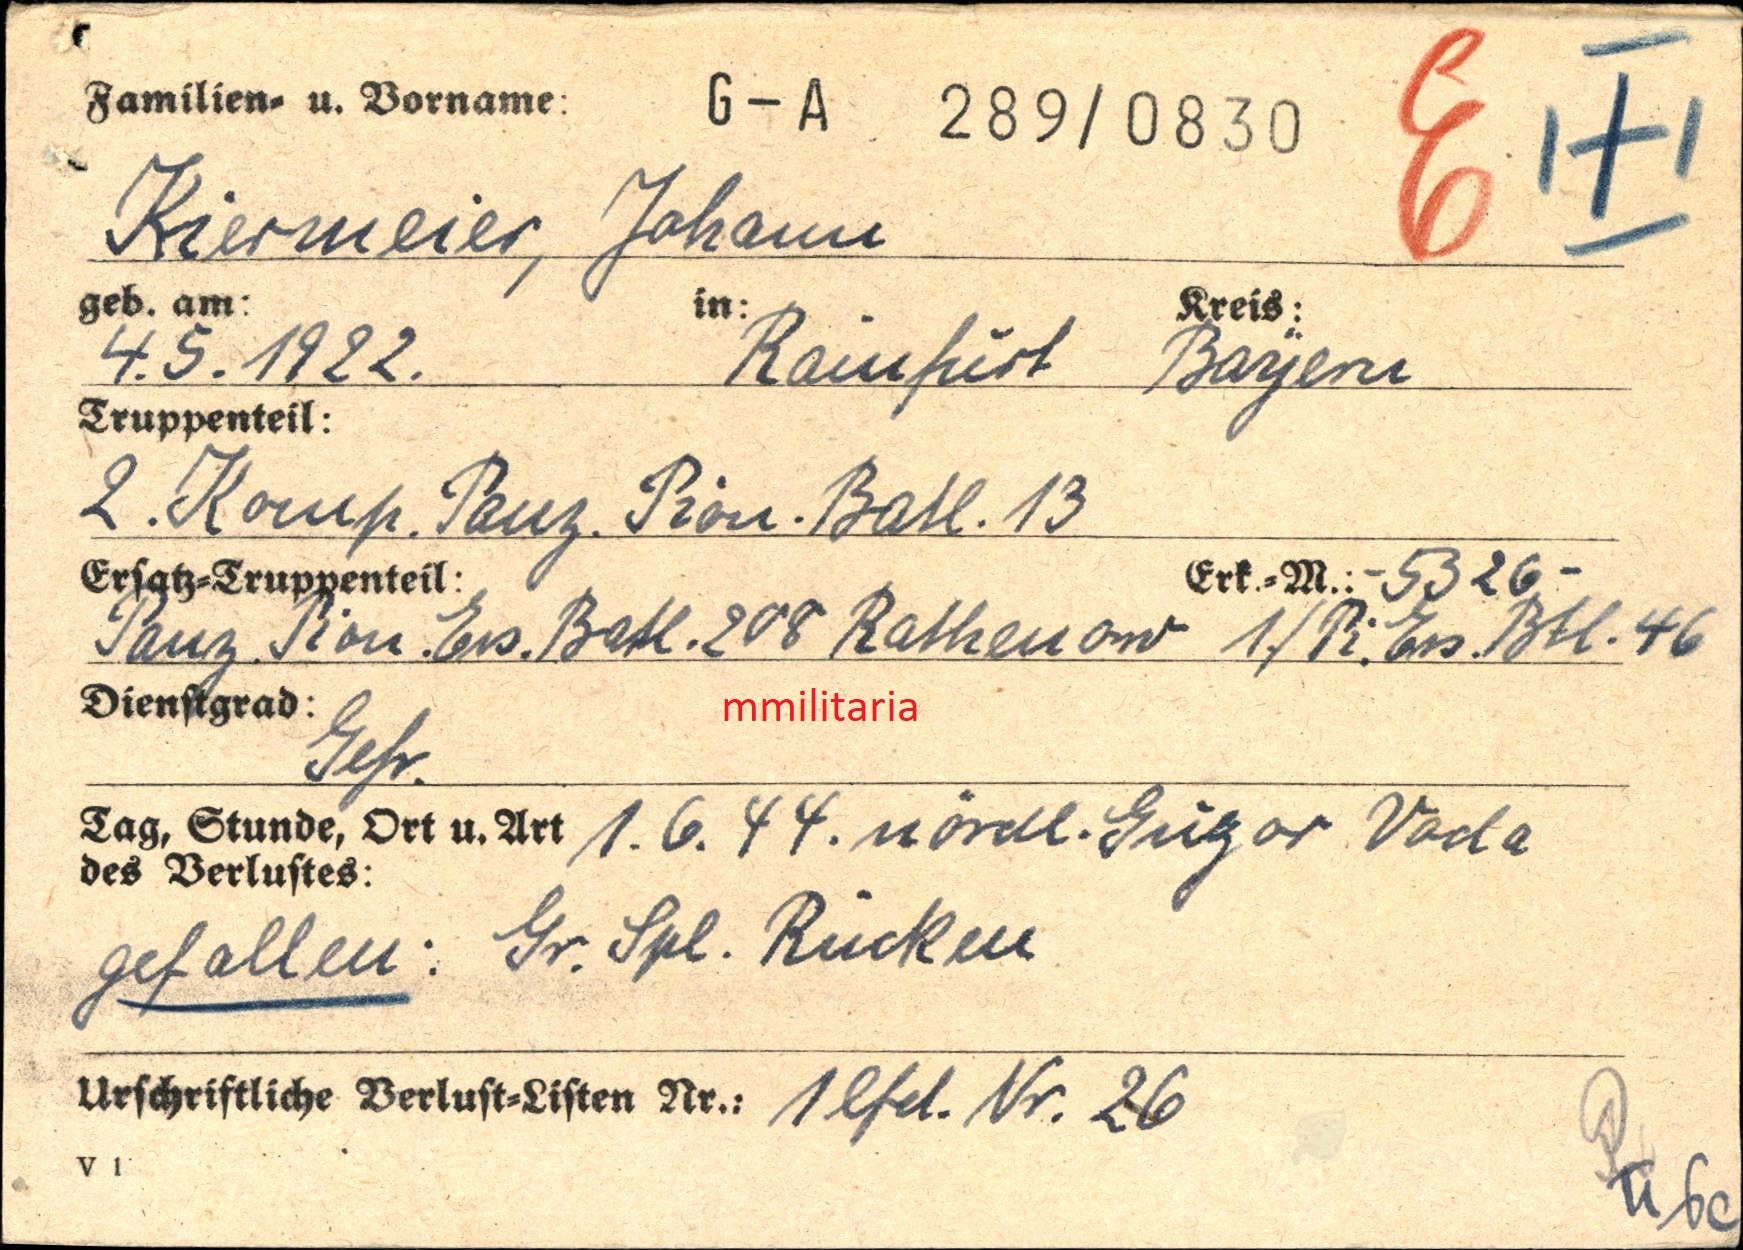 Familien- u. Vorname: G-A 289/0830 E
Kiermeier, Johann
geb. am: in: Kreis:
4.5.1922. Rainfurt Bayern
Truppenteil:
2. Komp. Panz. Pion. Batl. 13
Ersatz-Truppenteil: Erk.-M.: -5326-
Panz. Pion. Ers. Batl. 208 Rathenow 1./Pi. Ers. Btl. 46
Dienstgrad:
Gefr.
mmilitaria
Tag, Stunde, Ort u. Art 1.6.44. nördl. Voda
des Verlustes:
gefallen: Gr. Spl. Rücken
Urschriftliche Verlust-Listen Nr.: 1 lfd. Nr. 26
V 1